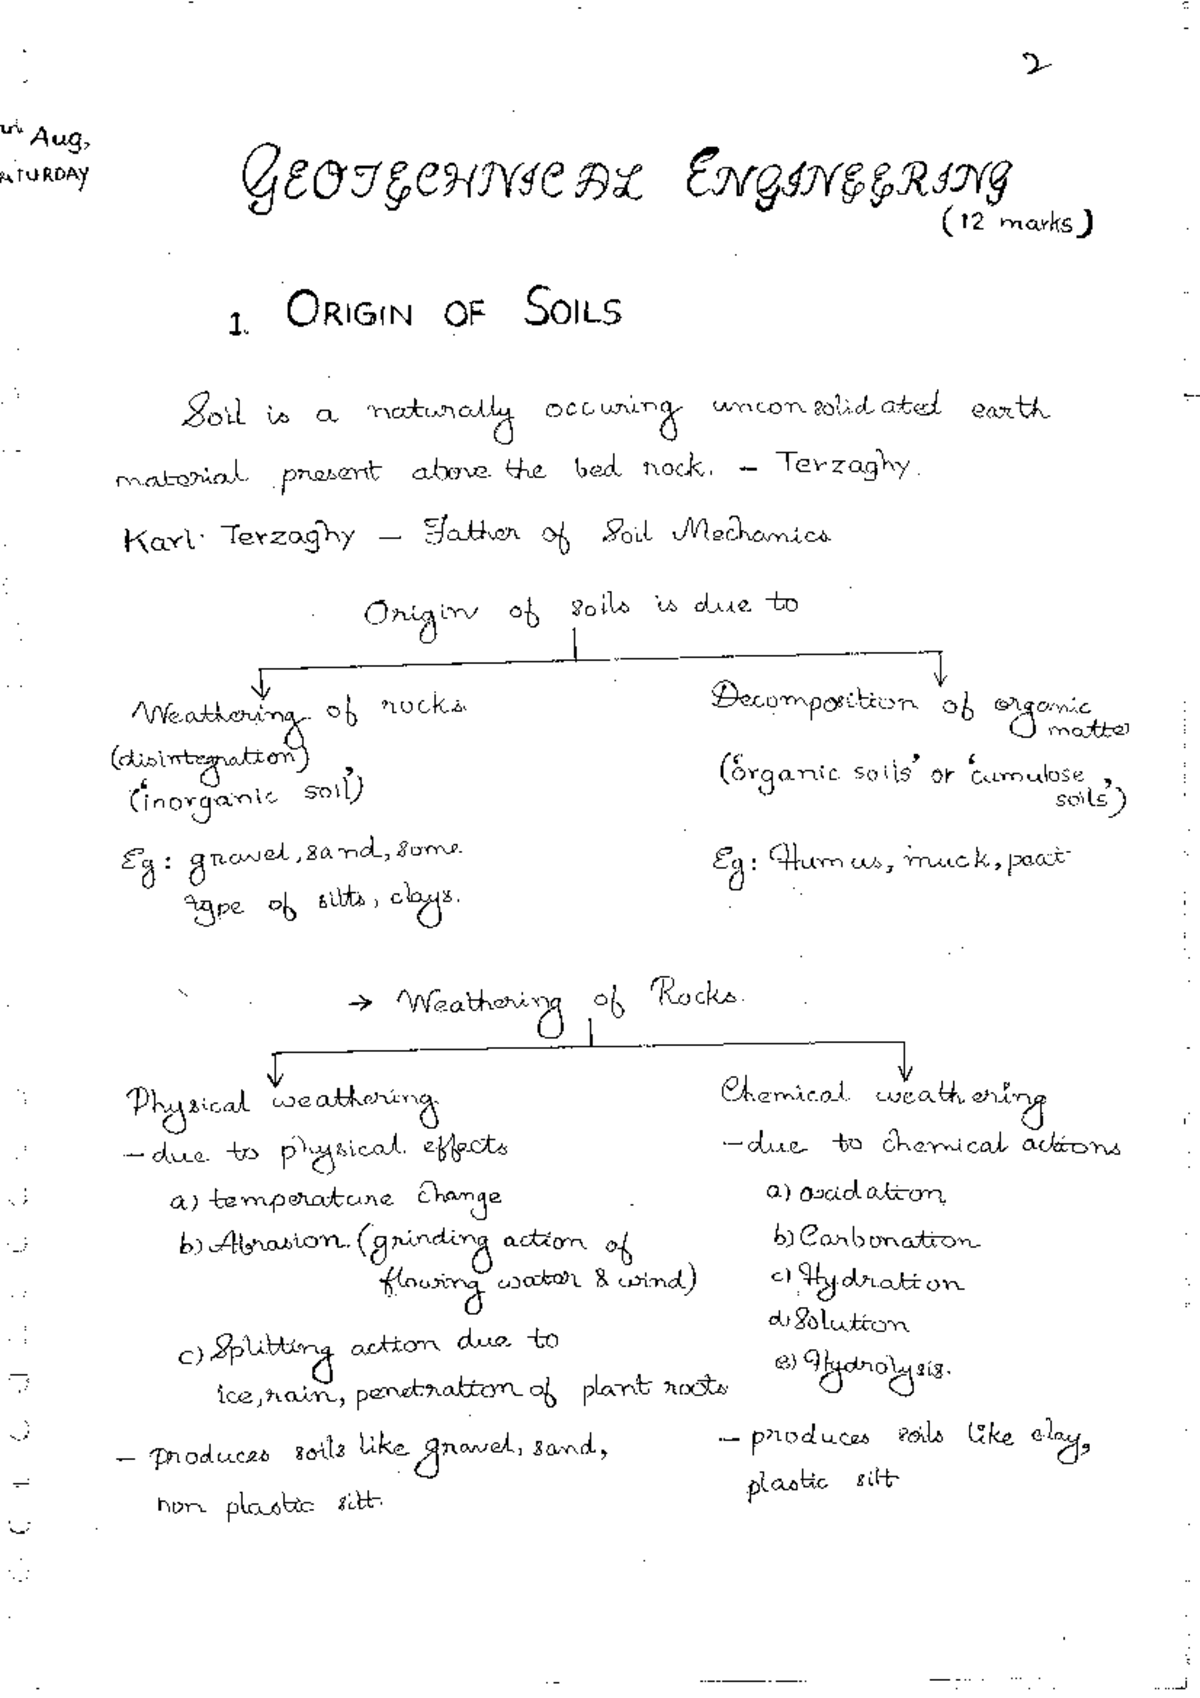 2
Aug,
SATURDAY
GEOTECHNICAL ENGINEERING
(12 marks)
1. ORIGIN OF SOILS
Soil is a naturally occuring unconsolidated earth
material present above the bed rock. – Terzaghy.
Karl Terzaghy – Father of Soil Mechanics
Origin of soils is due to
Weathering of rocks.
(disintegration)
('inorganic soil')
Eg: gravel, sand, some
type of silts, clays.
Decomposition of organic
matter
('organic soils' or 'cumulose
soils')
Eg: Humus, muck, peat
→ Weathering of Rocks.
Physical weathering.
– due to physical effects
a) temperature change
b) Abrasion. (grinding action of
flowing water & wind)
c) Splitting action due to
ice, rain, penetration of plant roots
– produces soils like gravel, sand,
non plastic silt.
Chemical weathering
– due to chemical actions
a) oxidation
b) Carbonation
c) Hydration
d) Solution
e) Hydrolysis.
– produces soils like clay,
plastic silt